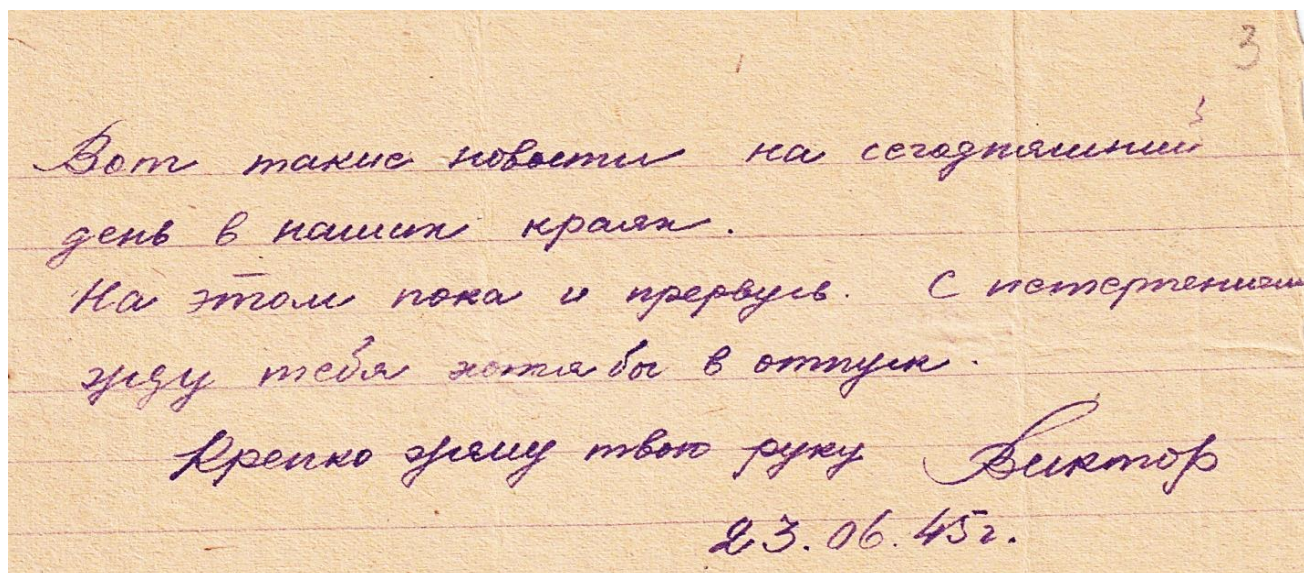 3
Вот такие новости на сегодняшний
день в наших краях.
На этом пока и прервусь. С нетерпением
жду тебя хотя бы в отпуск.
Крепко жму твою руку Виктор
23.06.45г.